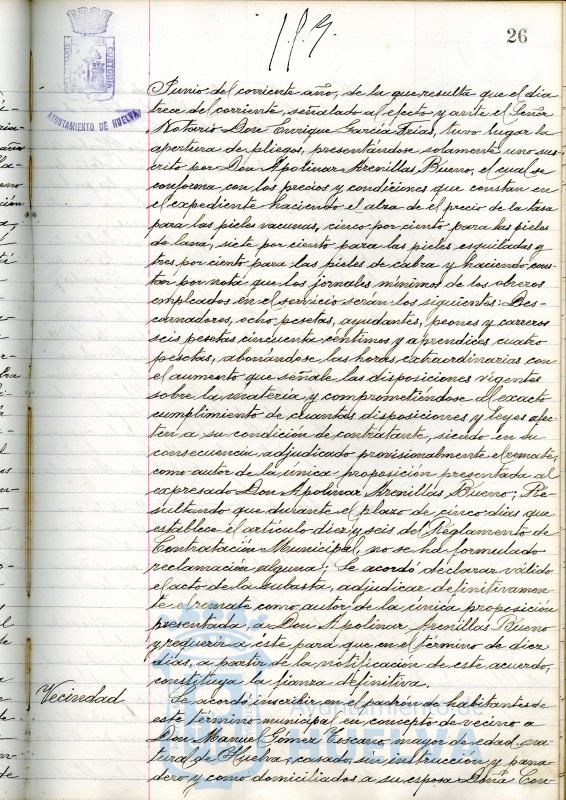 26
AYUNTAMIENTO DE HUELVA
Junio del corriente año, de la que resulta que el dia
trece del corriente, señalado al efecto, y ante el Señor
Notario Don Enrique García Frias, tuvo lugar la
apertura de pliegos, presentándose solamente uno sus-
crito por Don Apolinar Arenillas Bueno, el cual se
conforma con los precios y condiciones que constan en
el expediente haciendo el alza de el precio de la tasa
para las pieles vacunas, cinco por ciento para las pieles
de lana, siete por ciento para las pieles esquiladas y
tres por ciento para las pieles de cabra y haciendo cons-
tar por nota que los jornales minimos de los obreros
empleados en el servicio serán los siguientes: Des-
carnadores, ocho pesetas, ayudantes, peones y carreros
seis pesetas cincuenta céntimos y aprendices cuatro
pesetas, abonándose las horas extraordinarias con
el aumento que señale las disposiciones vigentes
sobre la materia y comprometiéndose al exacto
cumplimiento de cuantas disposiciones y leyes afec-
ten a su condición de contratante, siendo en su
consecuencia adjudicado provisionalmente el remate,
como autor de la única proposición presentada al
expresado Don Apolinar Arenillas Bueno; Re-
sultando que durante el plazo de cinco dias que
establece el artículo diez y seis del Reglamento de
Contratación Municipal, no se ha formulado
reclamación alguna; Se acordó declarar válido
el acto de la subasta, adjudicar definitivamen-
te el remate como autor de la única proposición
presentada, a Don Apolinar Arenillas Bueno
y requerir a éste para que en el término de diez
dias, a partir de la notificación de este acuerdo,
constituya la fianza definitiva.
Vecindad
Se acordó inscribir en el padrón de habitantes de
este término municipal en concepto de vecino a
Don Manuel Gómez Toscano, mayor de edad, na-
tural de Huelva, casado, sin instrucción y pana-
dero y como domiciliados a su esposa Doña Con-
Ayuntamiento de
HUELVA